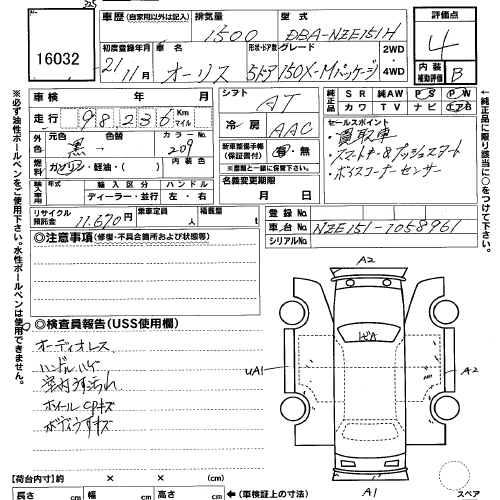 16032
車歴 (自家用以外は記入) 排気量 1500 型式 DBA-NZE151H
初度登録年月 21年11月 車名 オーリス 形状・ドア数 5ドア グレード 150X-Mパッケージ 2WD・4WD
評価点 4
内装補助評価 B
車検 年 月
走行 98,236 Km マイル
外色 元色 黒 色替 カラーNo. 209
燃料 ガソリン・軽油・( ) 内装色
輸入車 年式 輸入区分 ディーラー・並行 ハンドル 左・右
リサイクル預託金 11,670円 乗車定員 人 積載量 t
シフト AT
冷房 AAC
新車整備手帳(保証書付) 有・無
(車歴と一緒に保管下さい)
名義変更期限 月 日
純正品 SR 純AW PS PW
カワ TV ナビ エアB
セールスポイント
・買取車
・スマートキー&プッシュスタート
・ボイスコーナーセンサー
登録No
車台No NZE151-1058961
シリアルNo
※必ず油性ボールペンをご使用下さい。水性ボールペンは使用できません。
←純正品に限り該当に○をつけて下さい。
◎注意事項 (修復・不具合箇所および状態等)
◎検査員報告(USS使用欄)
オーディオレス
ハンドルハゲ
室内うすよごれ
ホイールCPキズ
ボディうすキズ
A2
UA1
A2
A1
スペア
【荷台内寸】約 × × (cm)
長さ cm 幅 cm 高さ cm ←(車検証上の寸法)